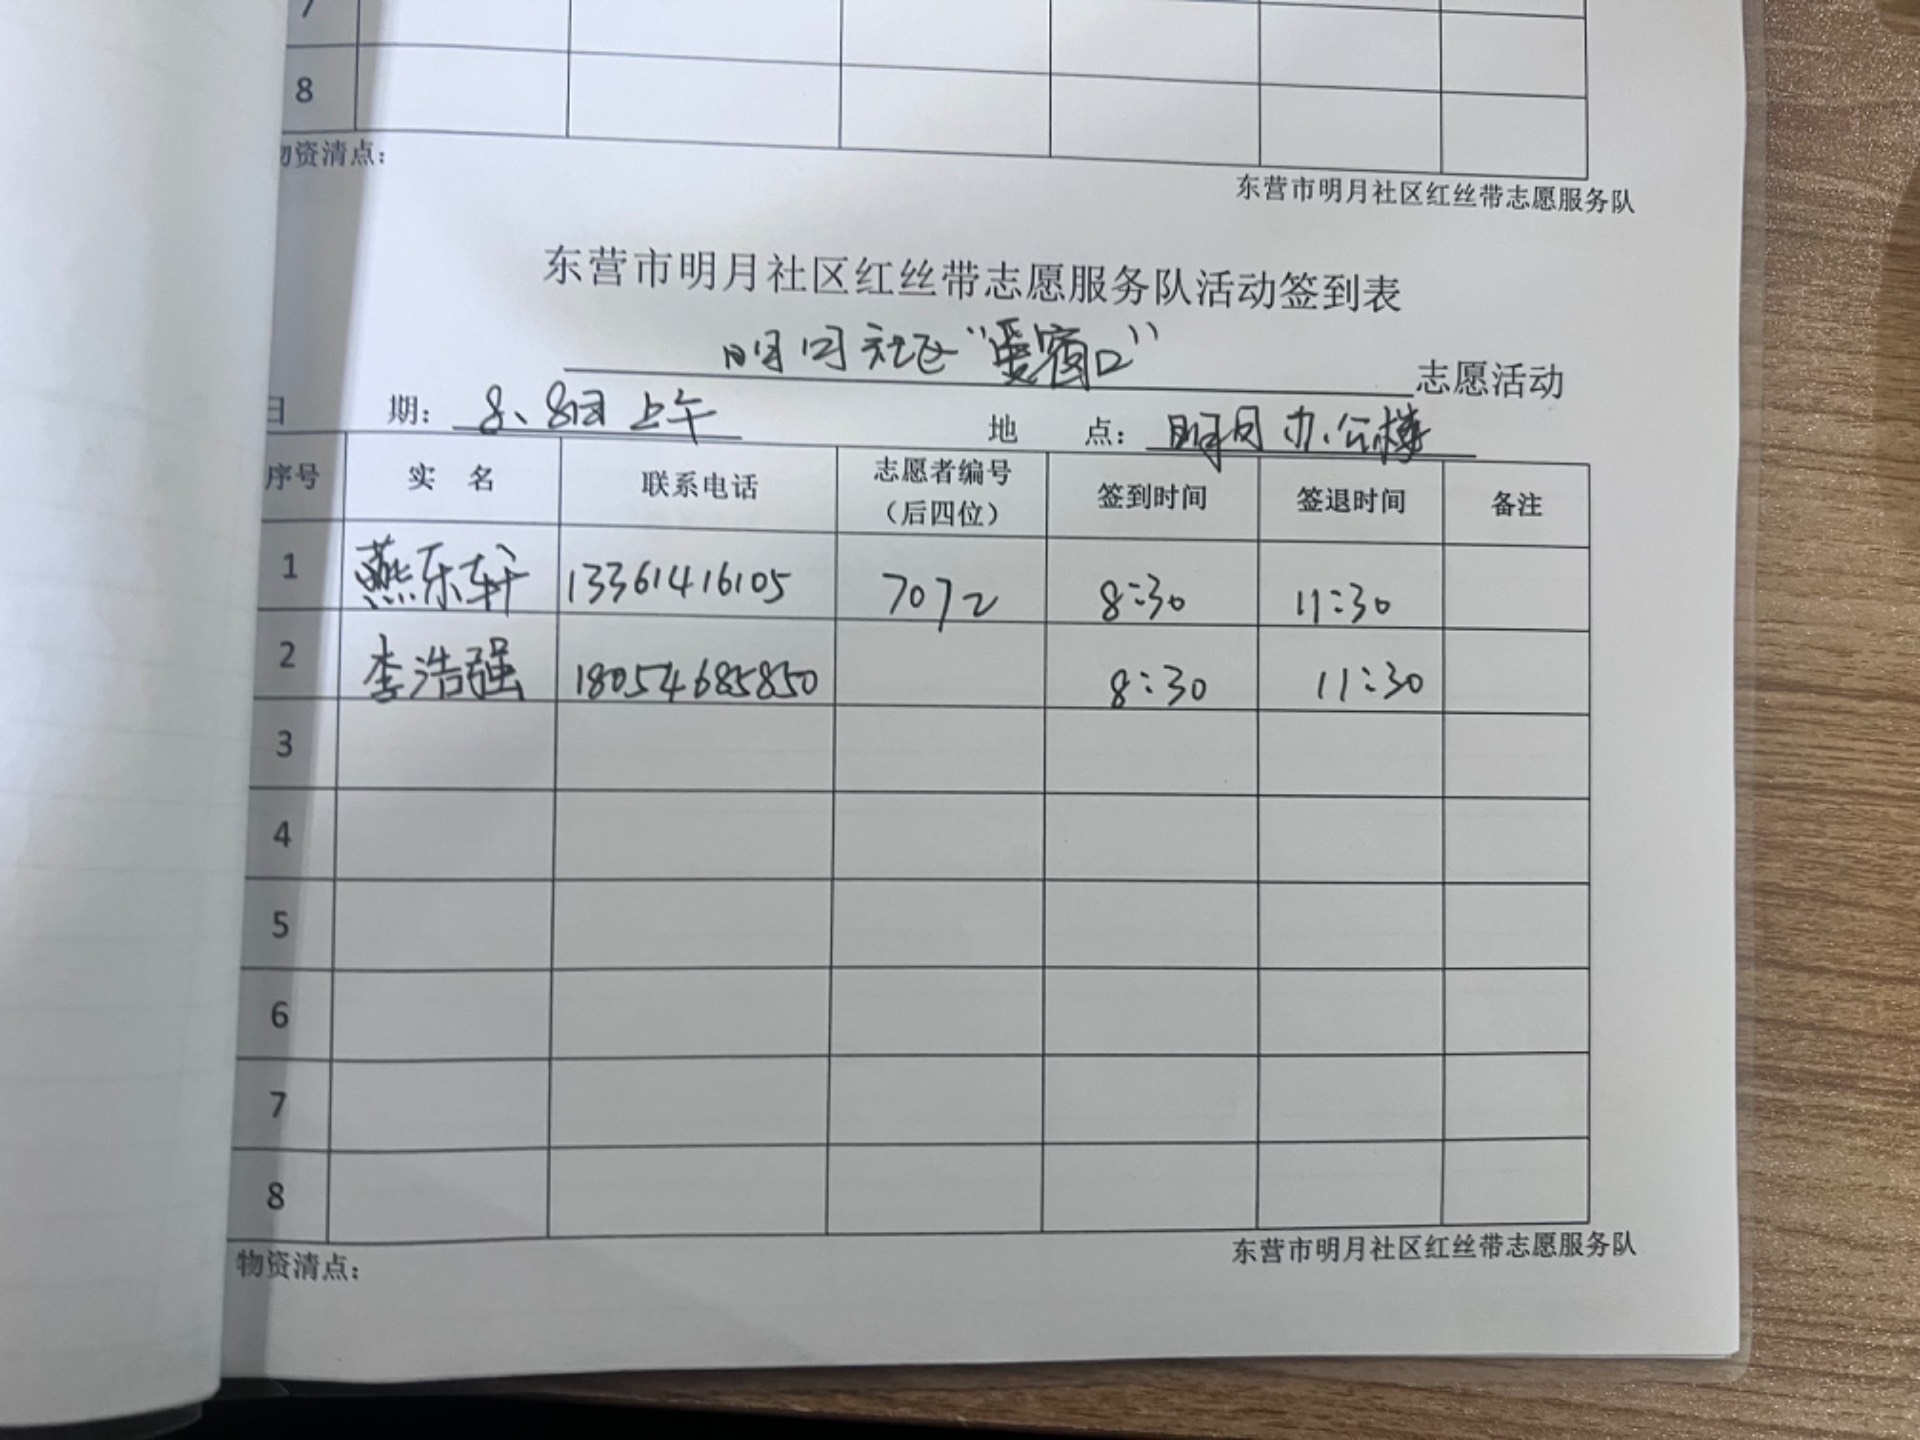 7
8
物资清点：
东营市明月社区红丝带志愿服务队
东营市明月社区红丝带志愿服务队活动签到表
明月社区“爱窗口” 志愿活动
日 期： 8、8日上午 地 点： 明月办公楼
序号 实 名 联系电话 志愿者编号（后四位） 签到时间 签退时间 备注
1 燕东轩 13361416105 7072 8:30 11:30
2 李浩强 18054685850 8:30 11:30
3
4
5
6
7
8
物资清点：
东营市明月社区红丝带志愿服务队